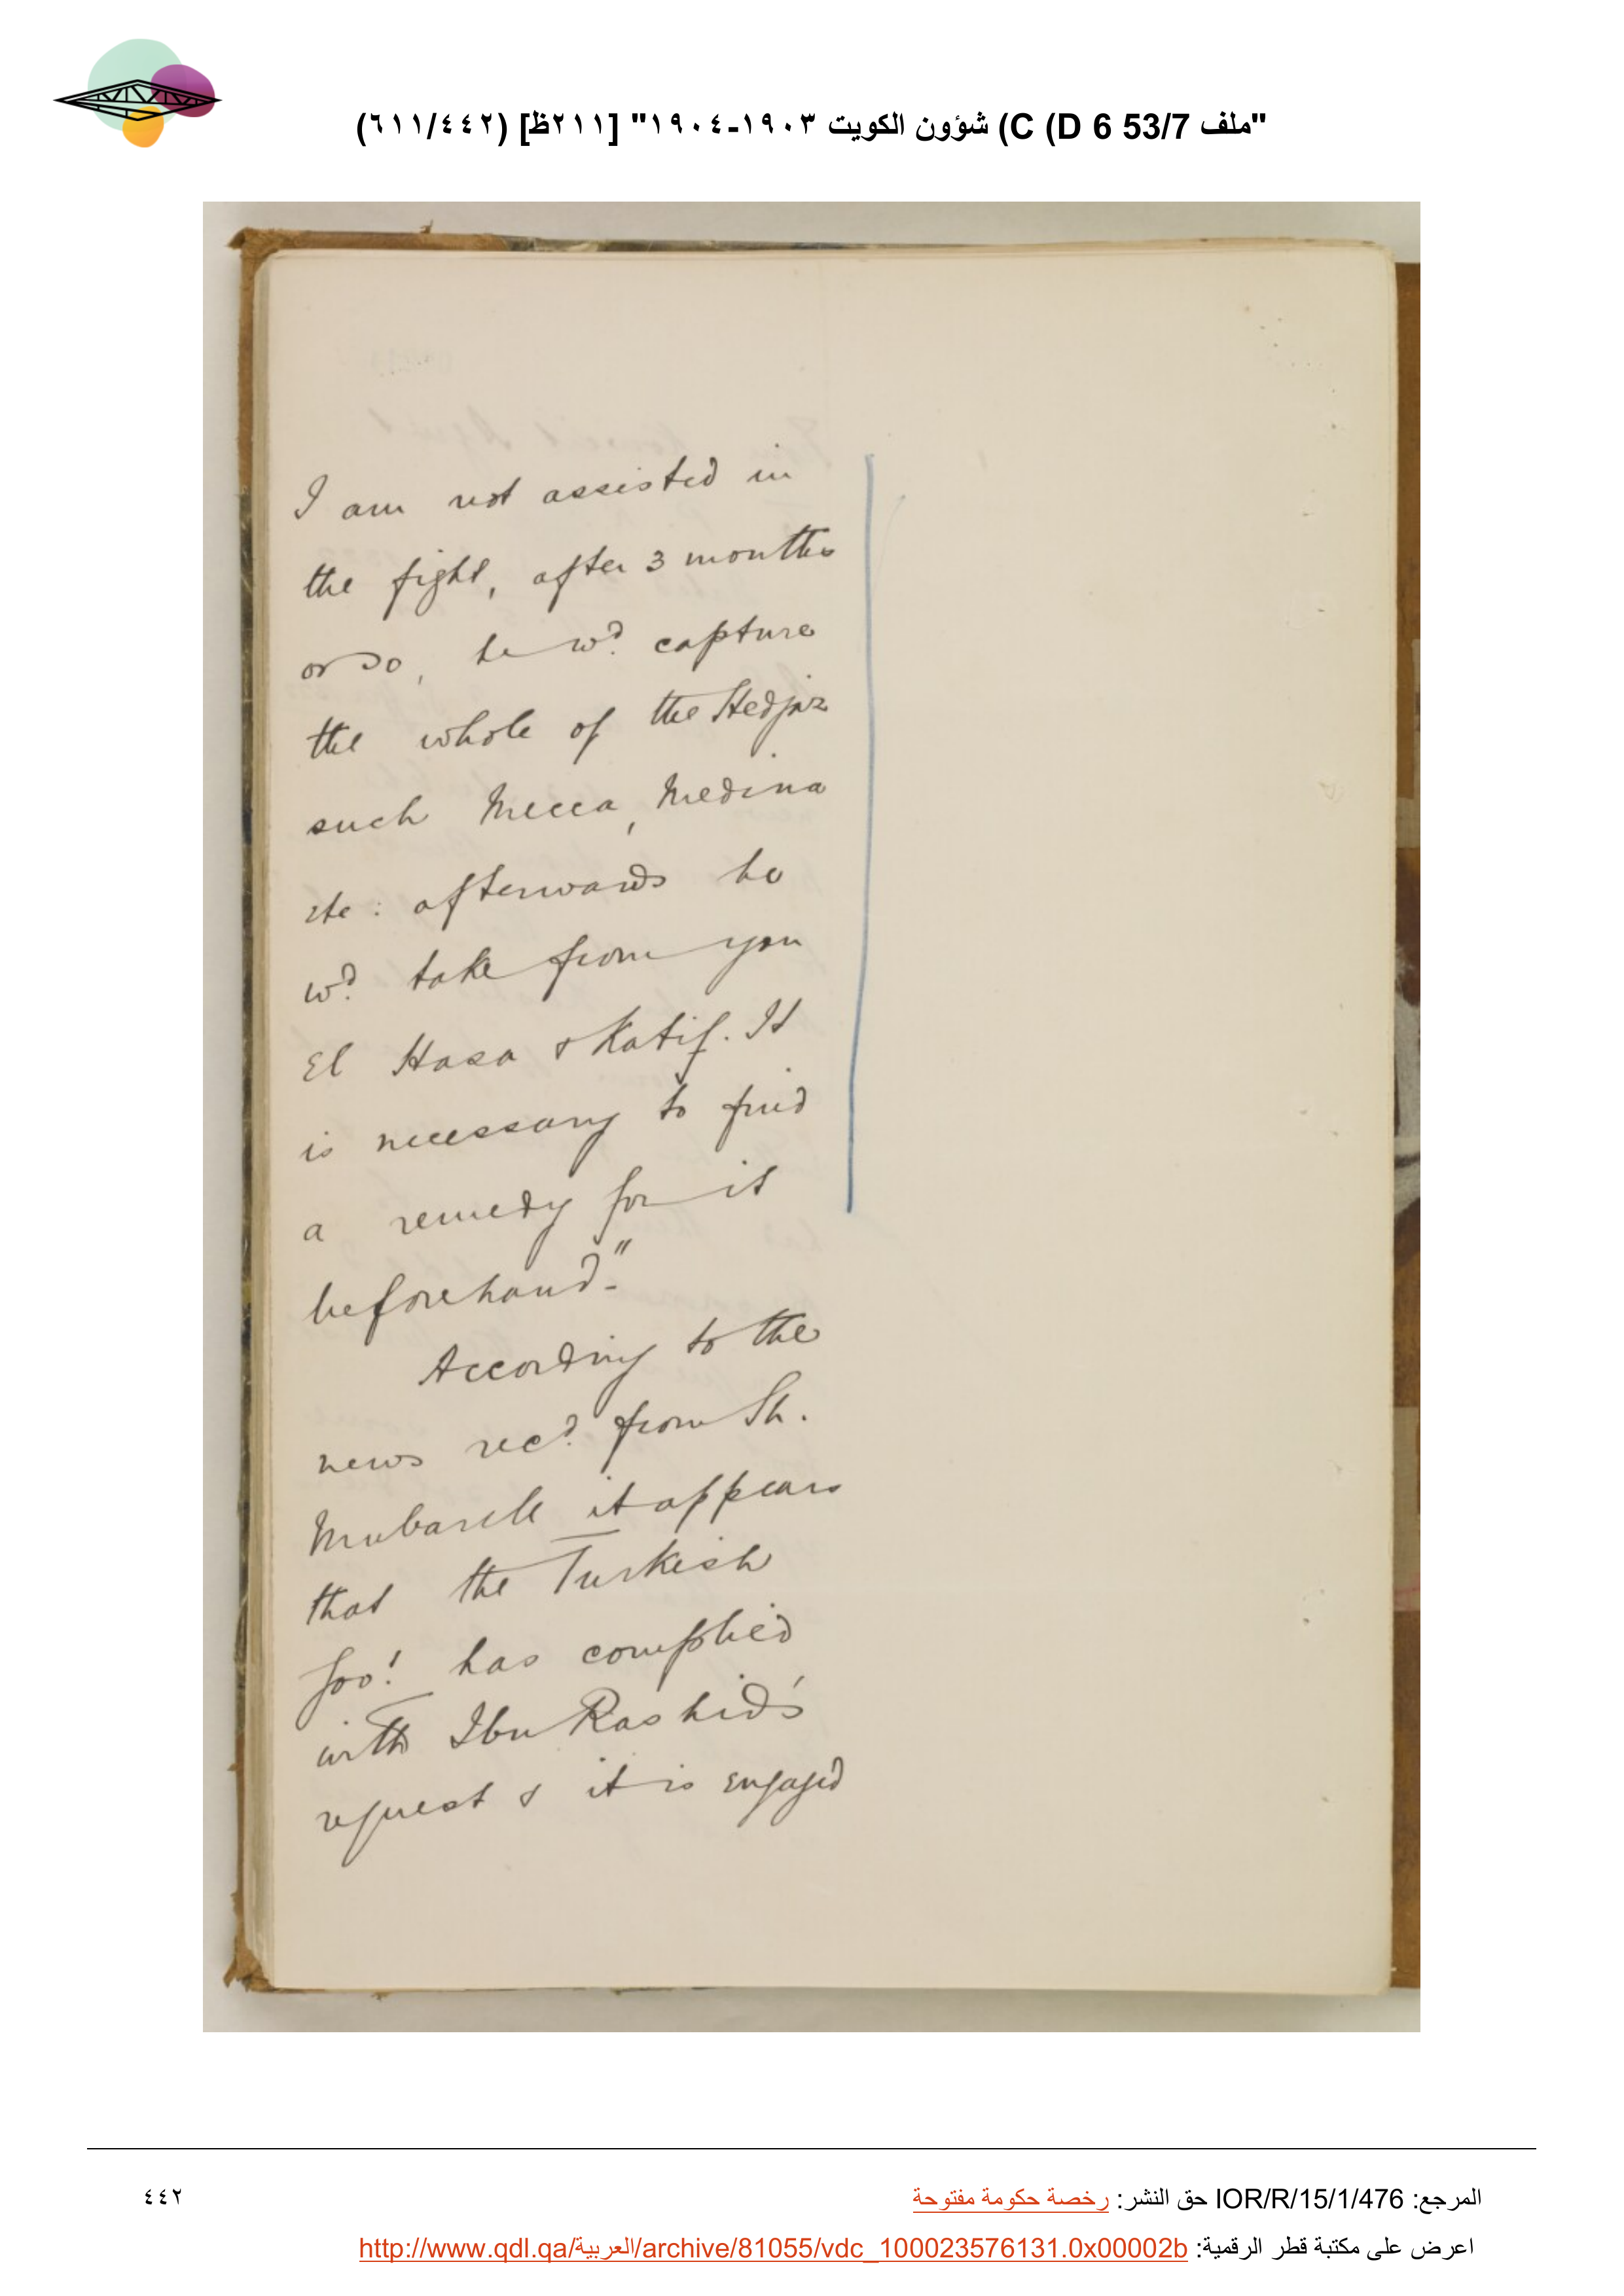 "ملف 53/7 C (D 6) شؤون الكويت ١٩٠٣-١٩٠٤" [٢١١ظ] (٦١١/٤٤٢)
I am not assisted in
the fight, after 3 months
or so, he wd. capture
the whole of the Hedjaz
such Mecca, Medina
etc: afterwards he
wd. take from you
El Hasa & Katif. It
is necessary to find
a remedy for it
beforehand."
According to the
news recd. from Sh.
Mubarek it appears
that the Turkish
Gov! has complied
with Ibn Rashid's
request & it is engaged
المرجع: IOR/R/15/1/476 حق النشر: رخصة حكومة مفتوحة
٤٤٢
اعرض على مكتبة قطر الرقمية: http://www.qdl.qa/العربية/archive/81055/vdc_100023576131.0x00002b